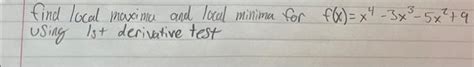 find local maxima and local minima for f(x) = x⁴ - 3x³ - 5x² + 9
using 1st derivative test